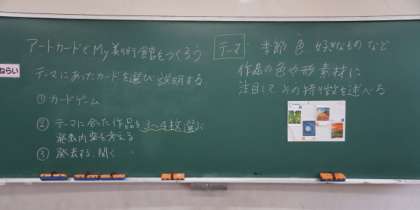 アートカードでMy美術館をつくろう
ねらい
テーマにあったカードを選び説明する
① カードゲーム
② テーマに合った作品を3〜4枚選び
発表内容を考える
③ 発表する、聞く
テーマ 季節 色 好きなもの など
作品の色や形 素材に
注目して その特性を述べる